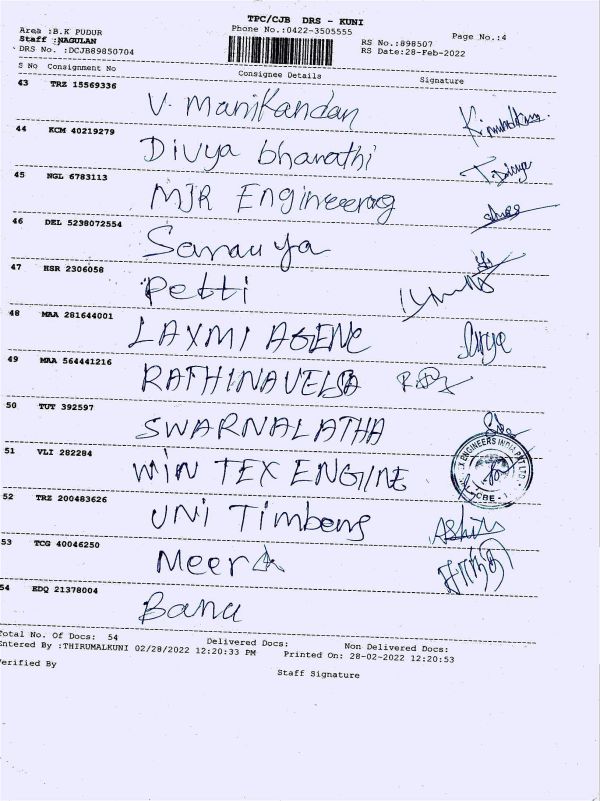 TPC/CJB DRS - KUNI
Area :B.K PUDUR
Phone No.:0422-3505555
Page No.:4
Staff :NAGULAN
RS No.:898507
DRS No. :DCJB89850704
RS Date:28-Feb-2022
S No Consignment No Consignee Details Signature
43 TRZ 15569336
V. Manikandan
44 KCM 40219279
Divya bharathi T.Divya
45 NGL 6783113
MJR Engineering
46 DEL 5238072554
Saranya
47 HSR 2306058
Petti
48 MAA 281644001
LAXMI AGENC
49 MAA 564441216
RATHINAVELSA
50 TUT 392597
SWARNALATHA
51 VLI 282284
WIN TEX ENGINE
X ENGINEERS INDIA PVT LTD
CBE -
52 TRZ 200483626
UNi Timbers
53 TCG 40046250
Meera
54 EDQ 21378004
Banu
Total No. Of Docs: 54 Delivered Docs: Non Delivered Docs:
Entered By :THIRUMALKUNI 02/28/2022 12:20:33 PM Printed On: 28-02-2022 12:20:53
Verified By
Staff Signature